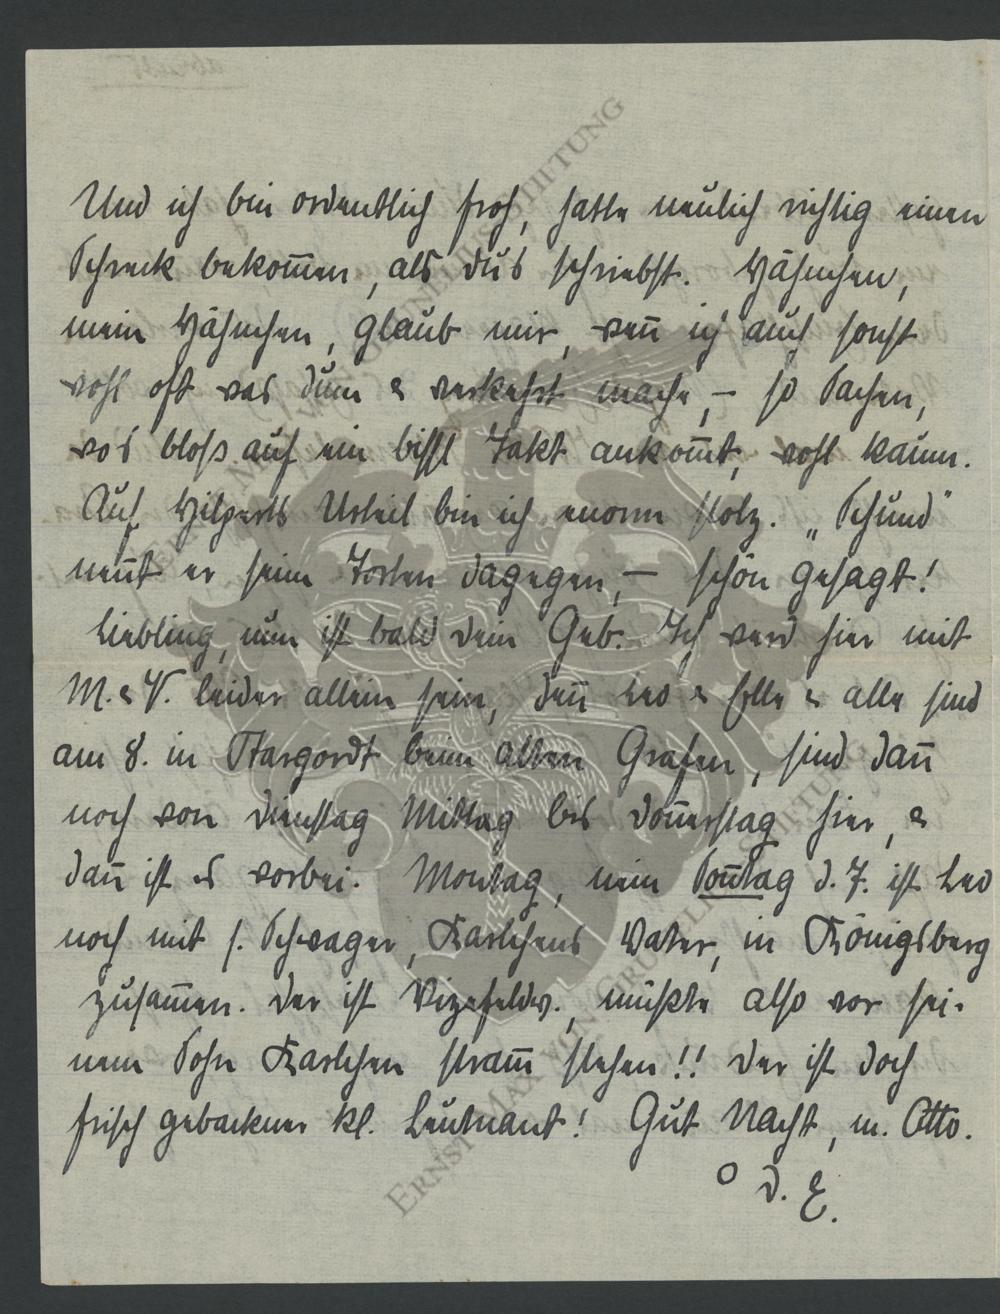 Und ich bin ordentlich froh, hatte neulich richtig einen
Schreck bekom̅en, als du's schriebst. Hähnchen,
mein Hähnchen, glaub mir, wen̅ ich auch sonst
wohl oft was dum̅ & verkehrt mache, – so Sachen,
wo's bloß auf ein bissl Takt ankom̅t, wohl kaum.
Auf Hilperts Urteil bin ich enorm stolz. „Schund"
nen̅t er seine Torten dagegen, – schön gesagt!
Liebling, nun ist bald dein Geb. Ich werd hier mit
M. & V. leider allein sein, den̅ Leo & Elle & alle sind
am 8. in Stargordt beim alten Grafen, sind dan̅
noch von Dienstag Mittag bis Don̅erstag hier, &
dan̅ ist es vorbei. Montag, nein Son̅tag d. 7. ist Leo
noch mit s. Schwager, Karlchens Vater, in Königsberg
zusam̅en. Der ist Vizefeldw., müßte also vor sei-
nem Sohn Karlchen stram̅ stehen!! Der ist doch
frisch gebackner kl. Leutnant! Gut Nacht, m. Otto.
O d. E.
ERNST MAX VON GRUNELIUS-STIFTUNG
ERNST MAX VON GRUNELIUS-STIFTUNG